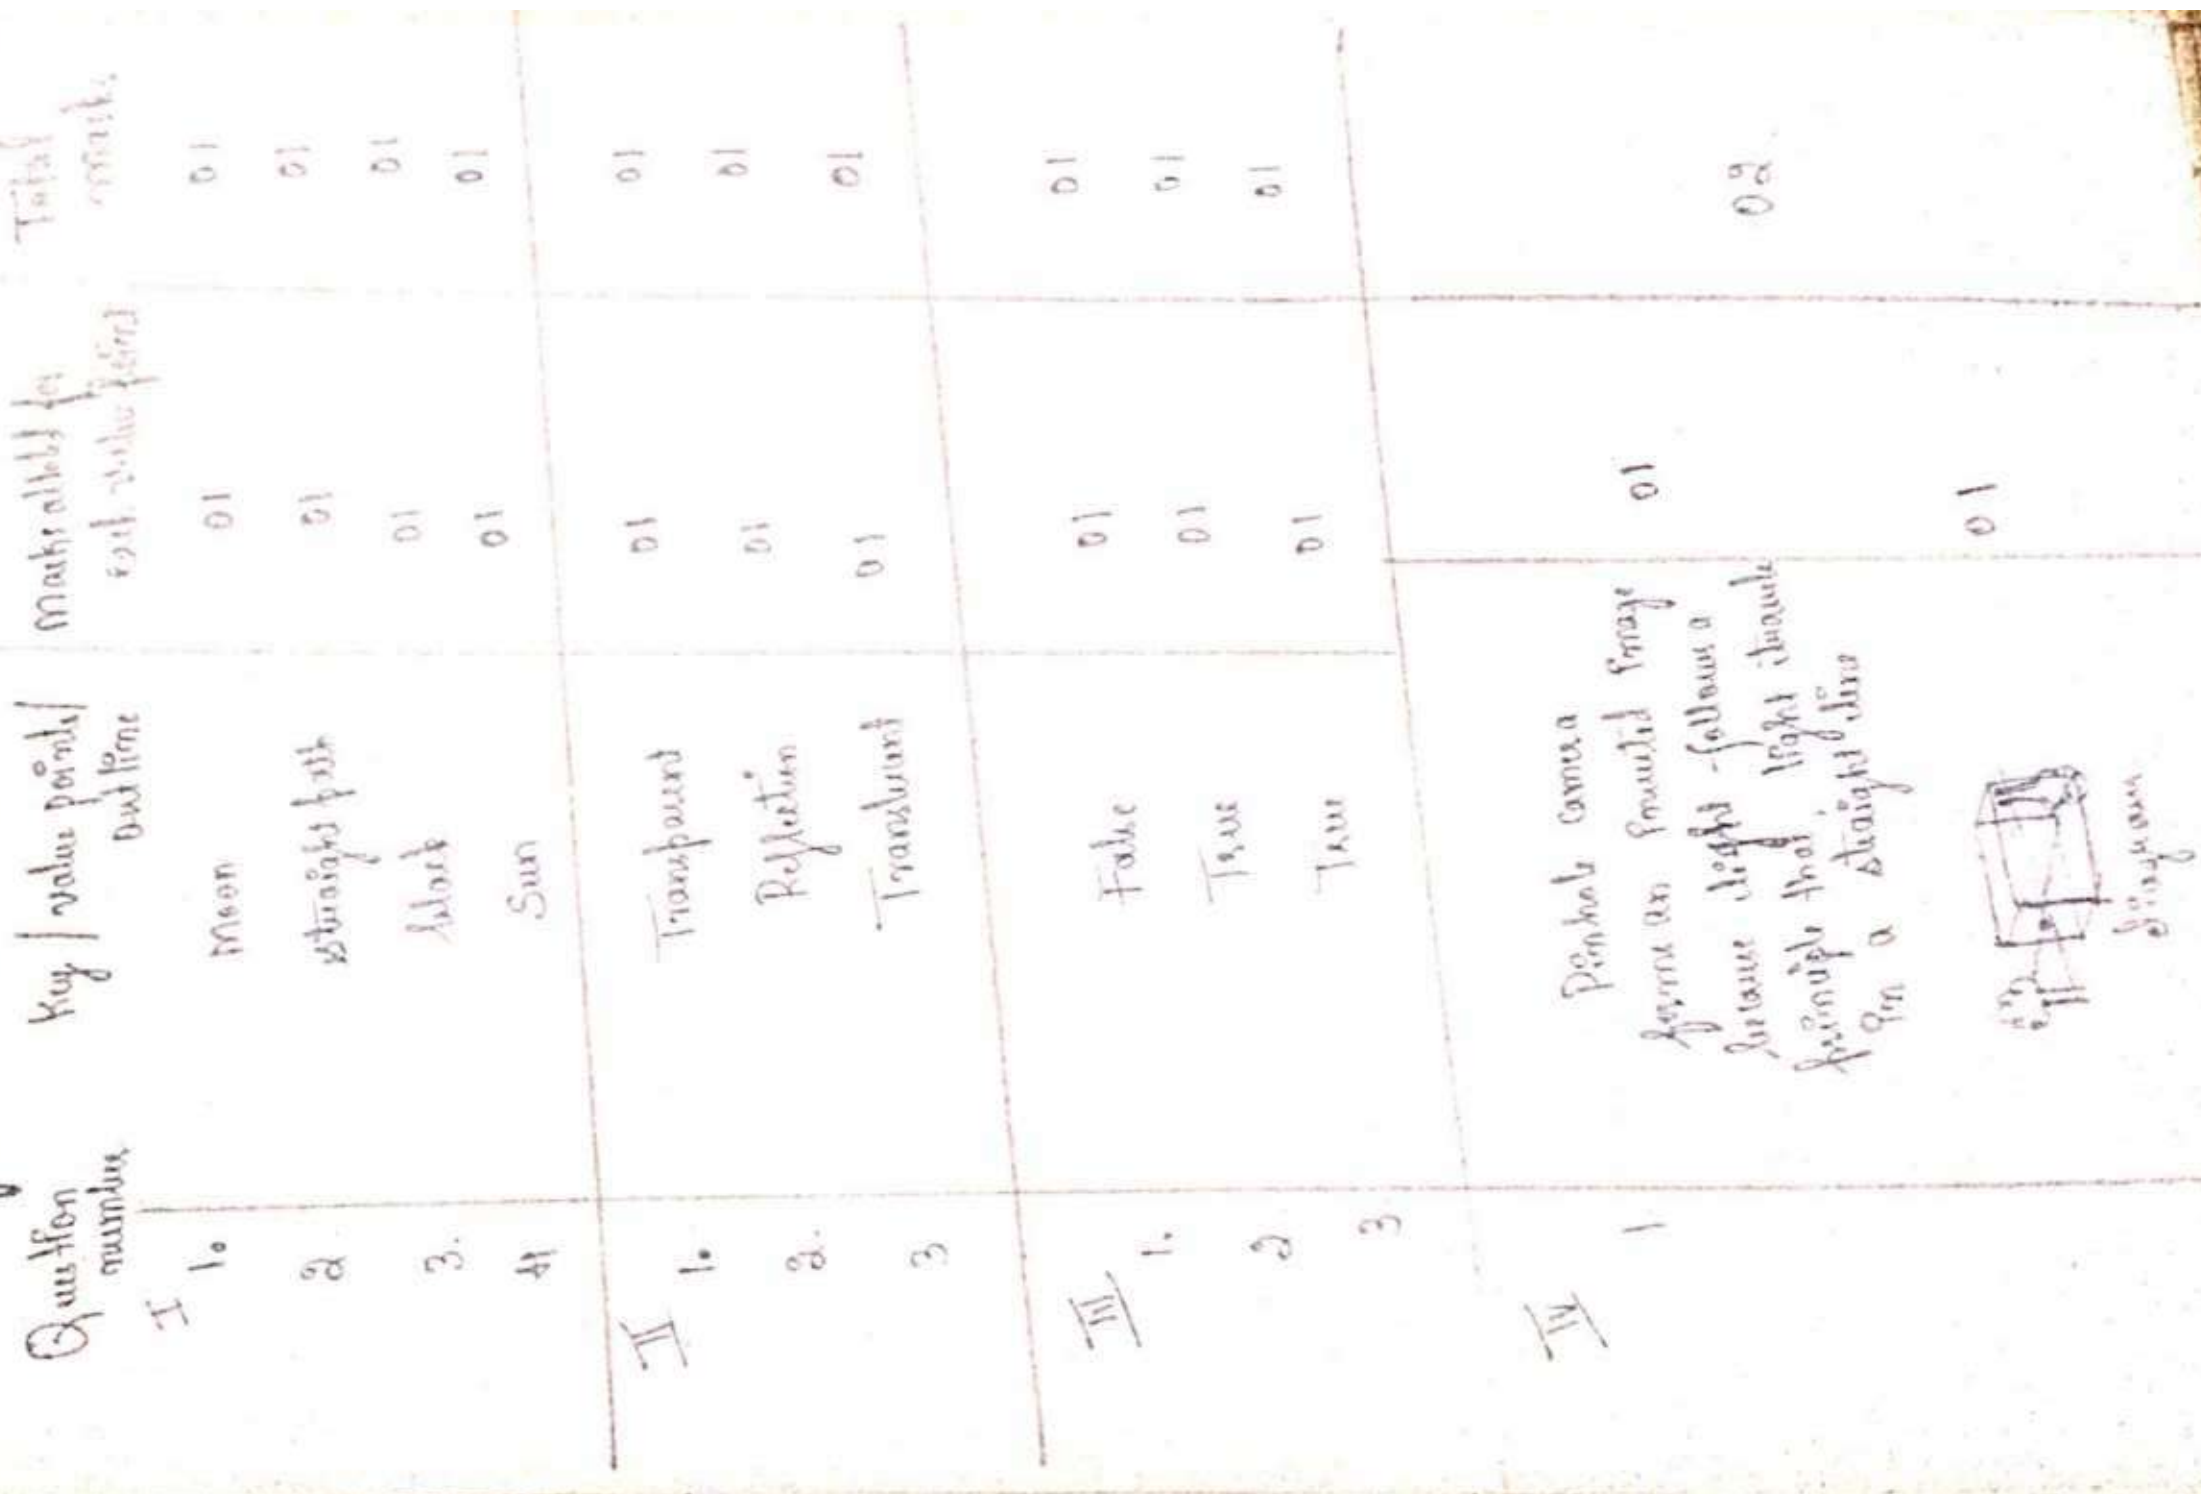 Question number | Key / value points / out line | Marks alloted for each value point | Total mark.
I
1. Moon 01 01
2. straight path 01 01
3. black 01 01
4 Sun 01 01
II
1. Transparent 01 01
2. Reflection 01 01
3 Translucent 01 01
III
1. False 01 01
2 True 01 01
3 True 01 01
IV
1 Pinhole camera
forms an inverted image 01 02
because light follows a
principle that, light travels
in a straight line
01
diagram